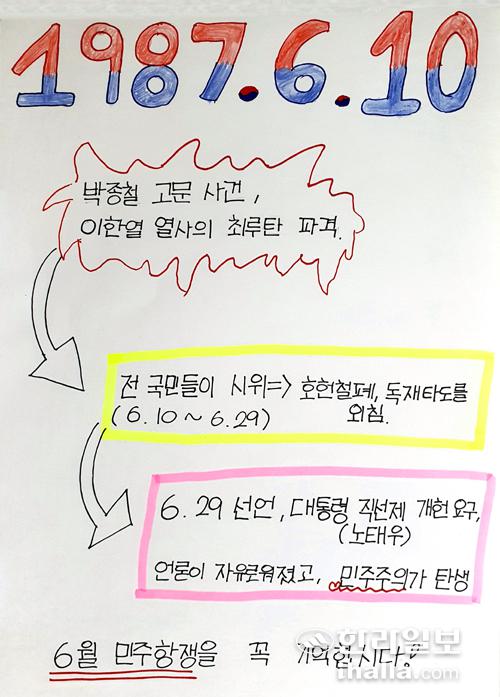 1987.6.10
박종철 고문 사건,
이한열 열사의 최루탄 파격.
전 국민들이 시위=> 호헌철폐, 독재타도를
(6.10 ~ 6.29) 외침.
6.29 선언, 대통령 직선제 개헌 요구,
(노태우)
언론이 자유로워졌고, 민주주의가 탄생
6월 민주항쟁을 꼭 기억합시다!
한라일보
ihalla.com